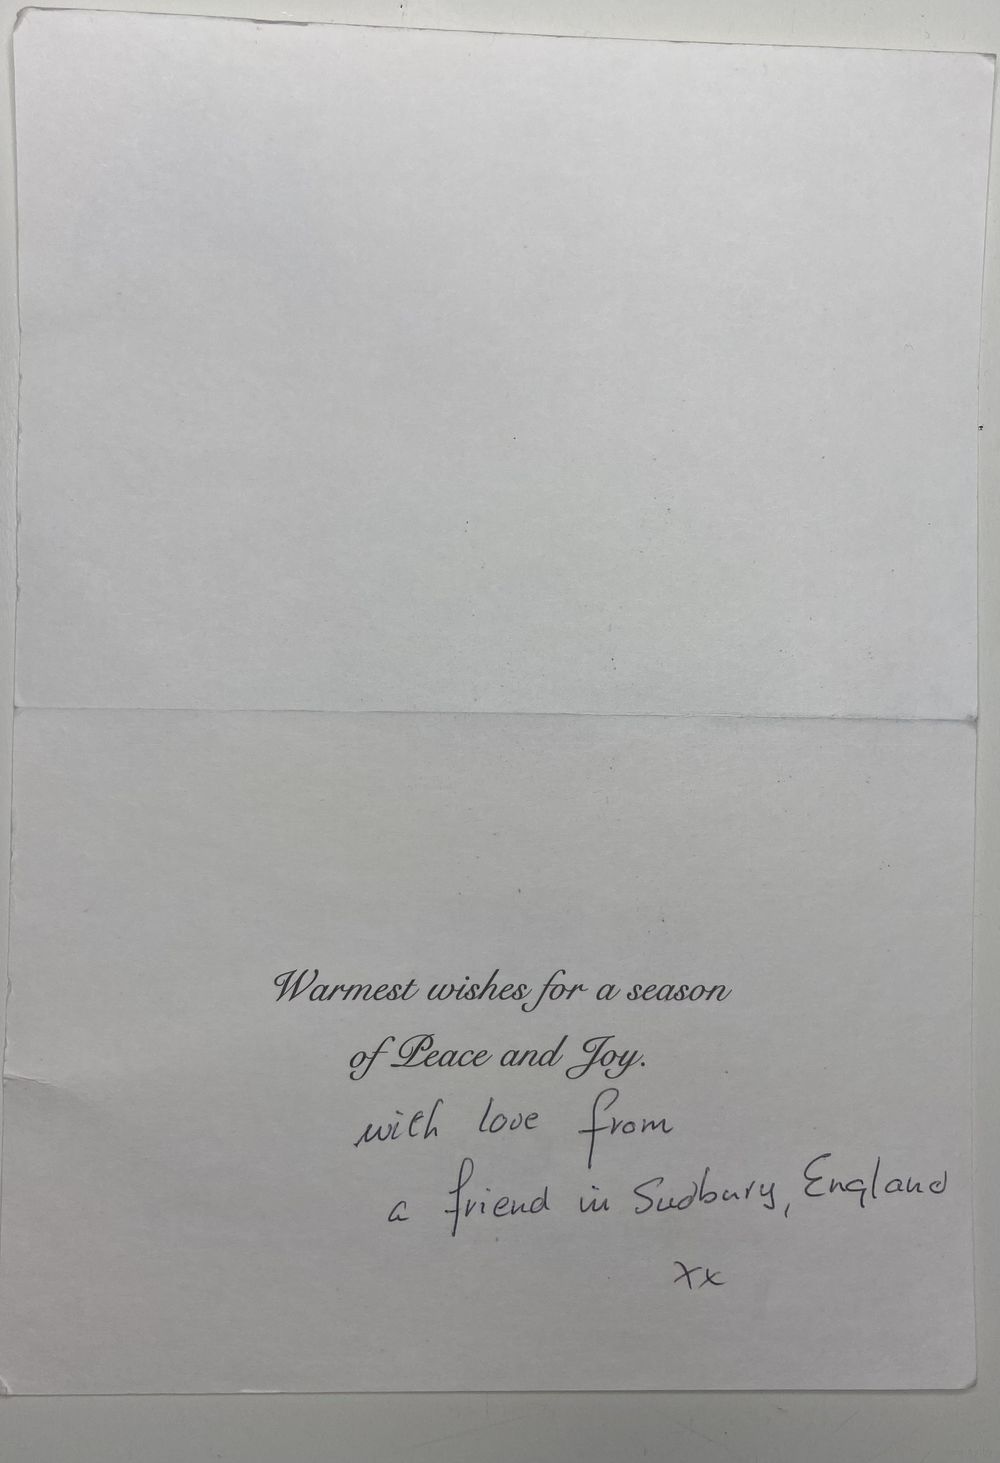 Warmest wishes for a season
of Peace and Joy.
with love from
a friend in Sudbury, England
xx